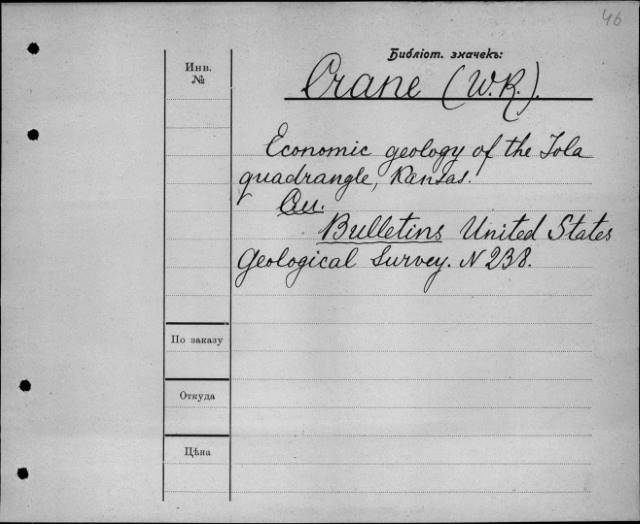 46
Библіот. значекъ:
Инв.
№
Crane (W.R.).
Economic geology of the Iola
quadrangle, Kansas.
См.
Bulletins United States
Geological Survey. N 238.
По заказу
Откуда
Цѣна